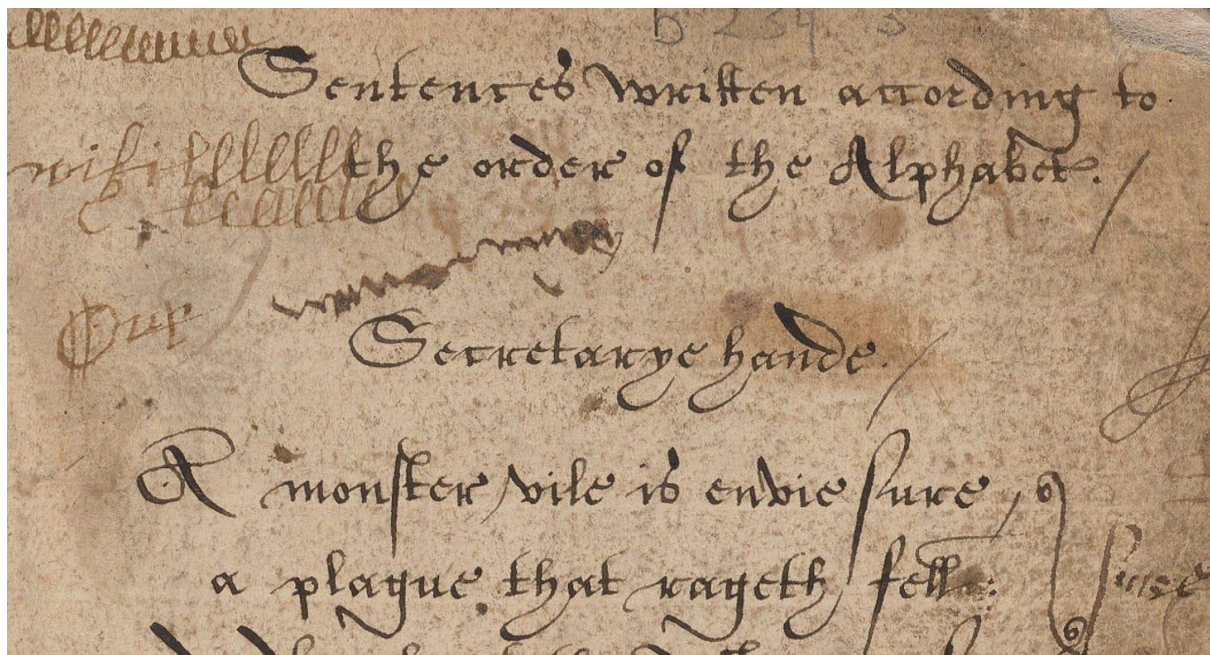 Sentences written according to
the order of the Alphabet.
Secretarye hande.
A monster vile is envie sure,
a plague that rageth fell:
sure